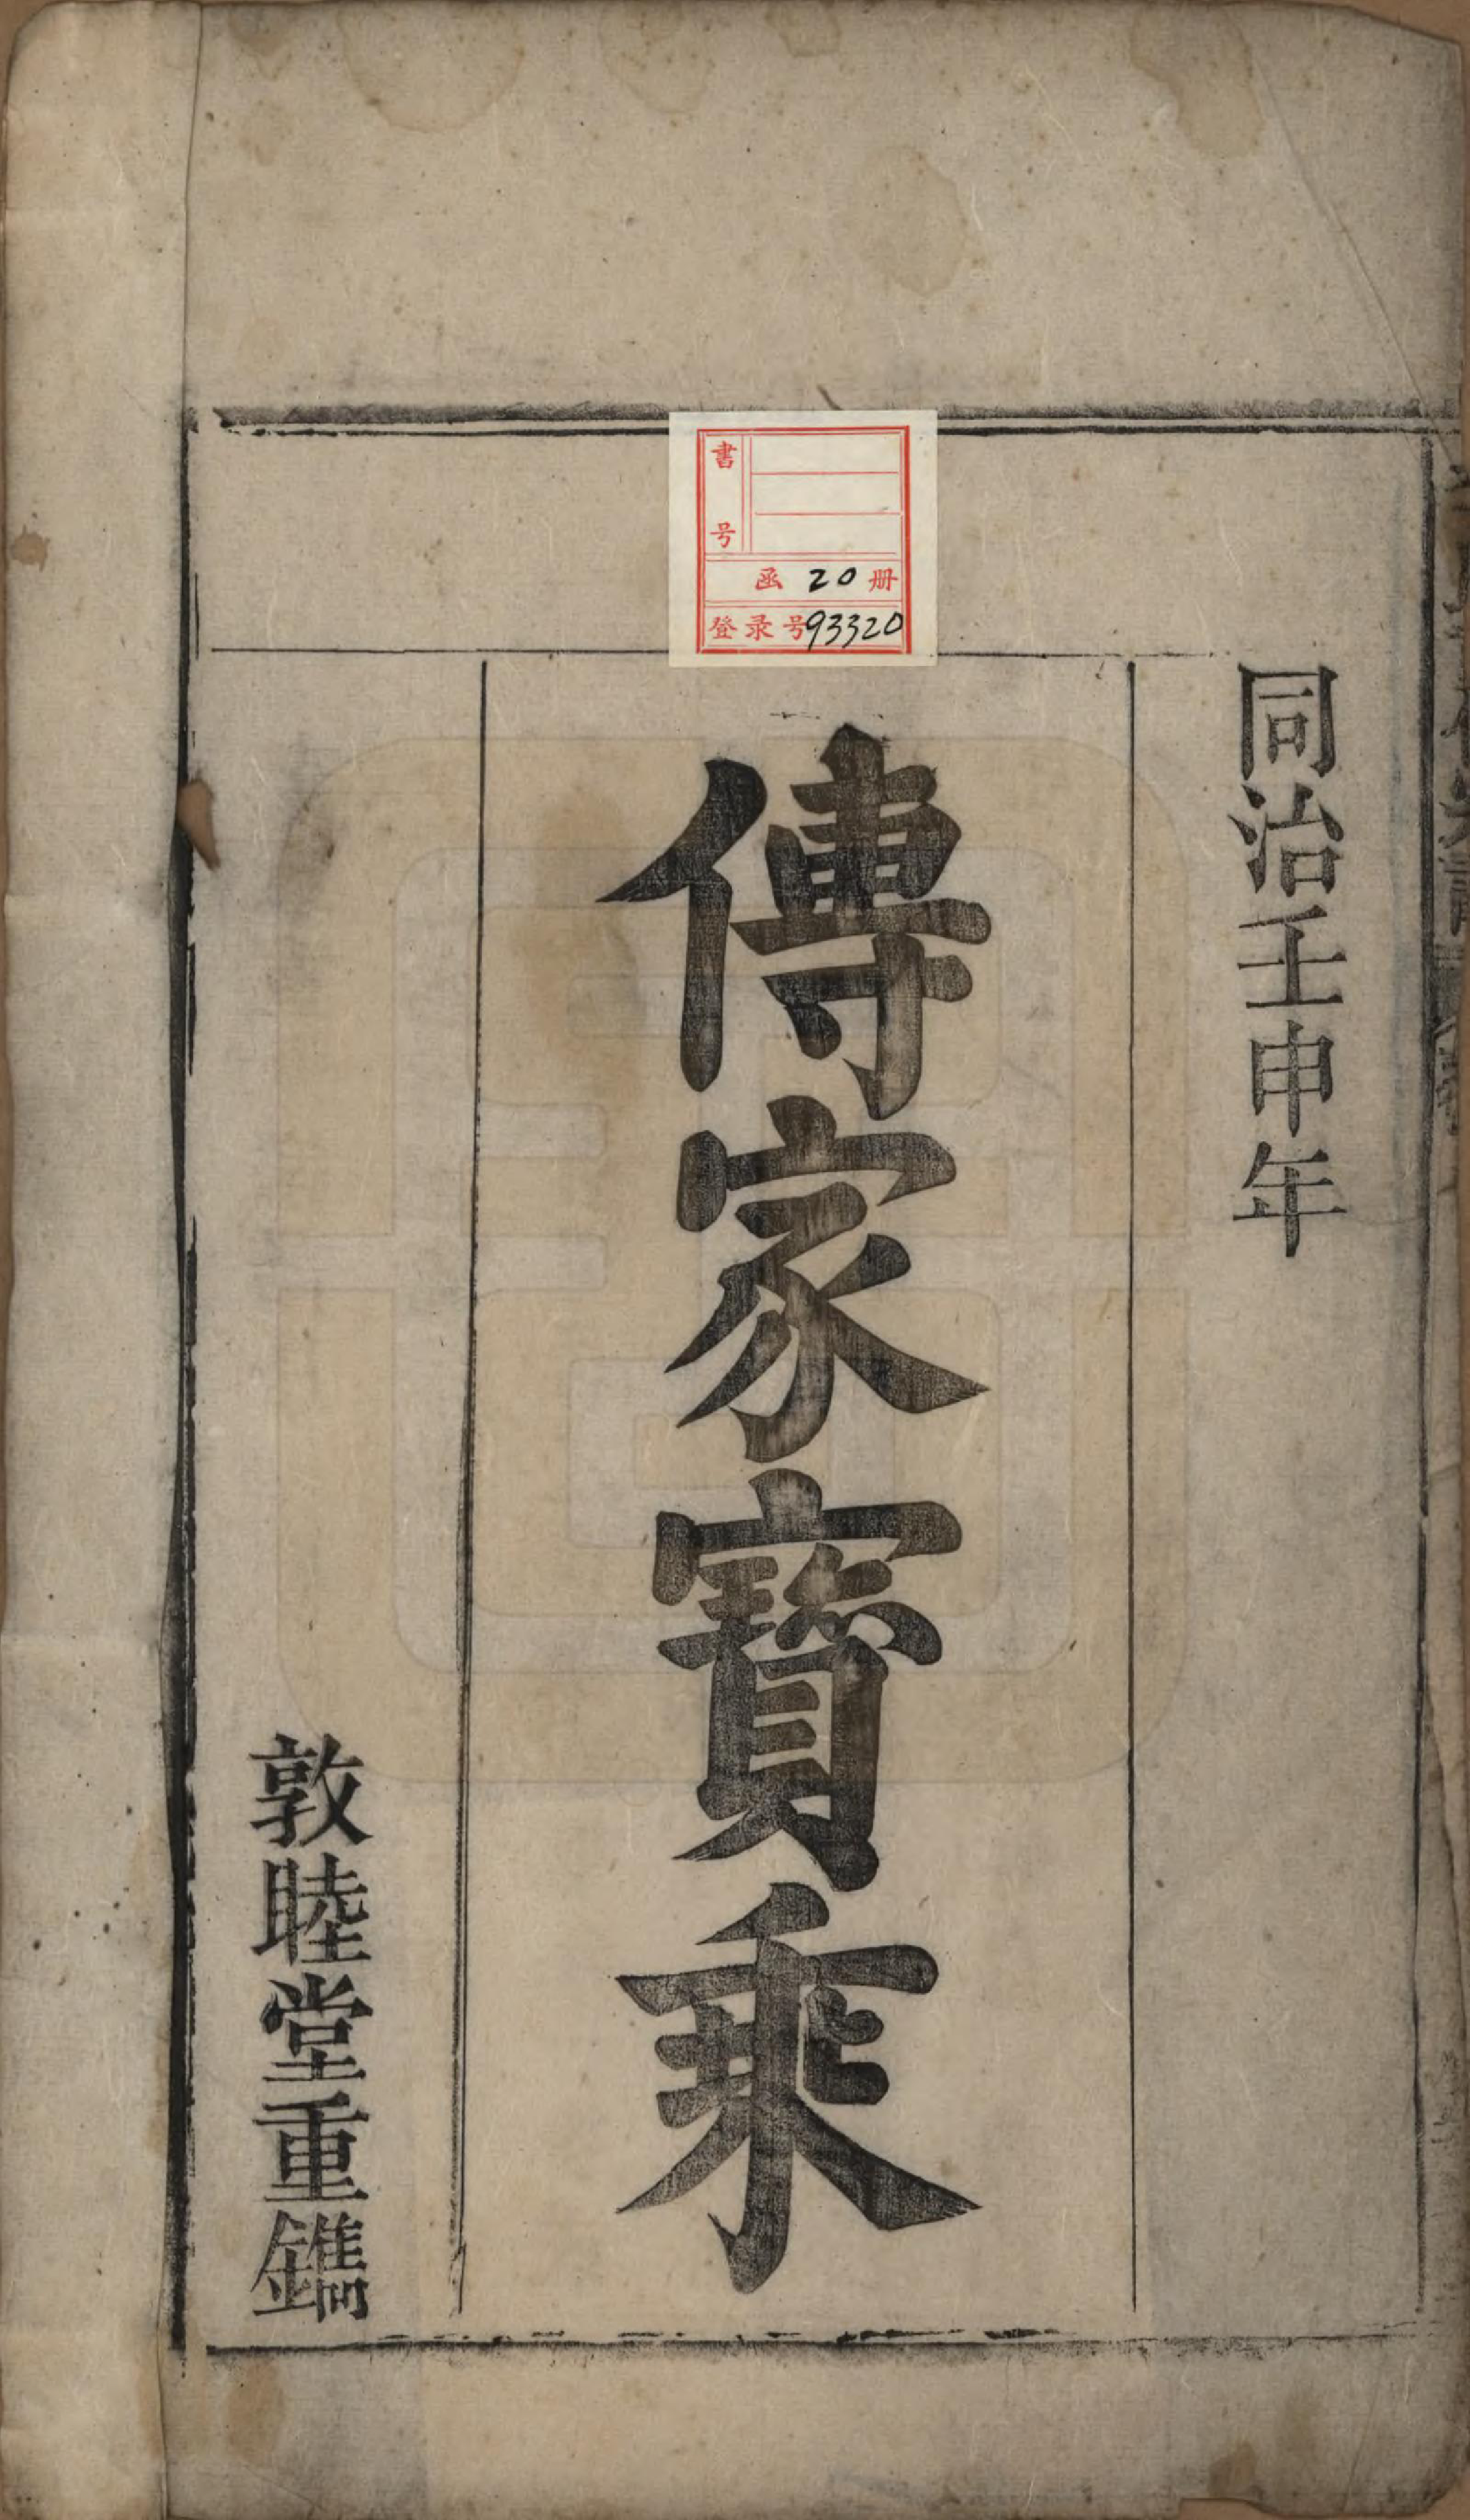 同治壬申年
傳家寶乘
敦睦堂重鐫
書号
函 20 册
登录号 93320